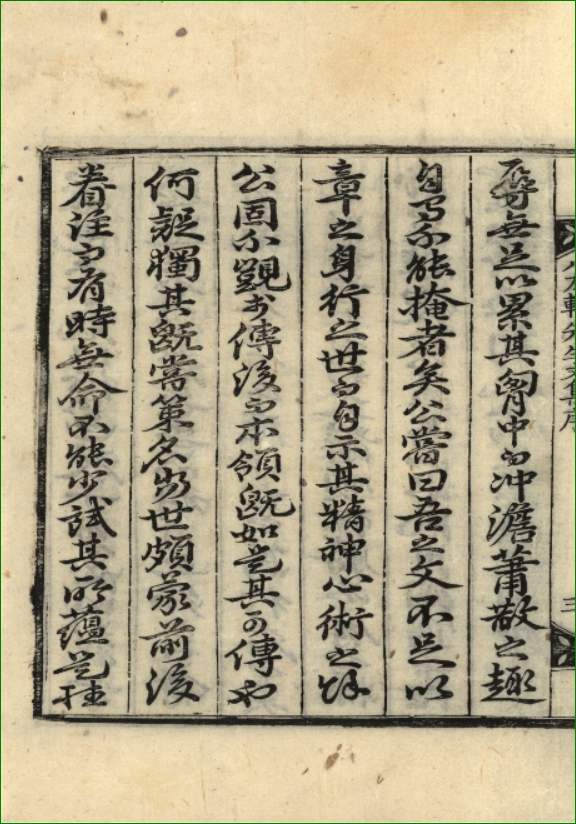 軒先生文集序
三
辱無足以累其胸中而冲澹蕭散之趣
自有不能掩者矣公嘗曰吾之文不足以
章之身行之世而自示其精神心術之餘
公固不覬於傳後而本領既如是其可傳也
何疑獨其既嘗策名當世頗蒙前後
眷注而有時無命不能少試其所蘊是種